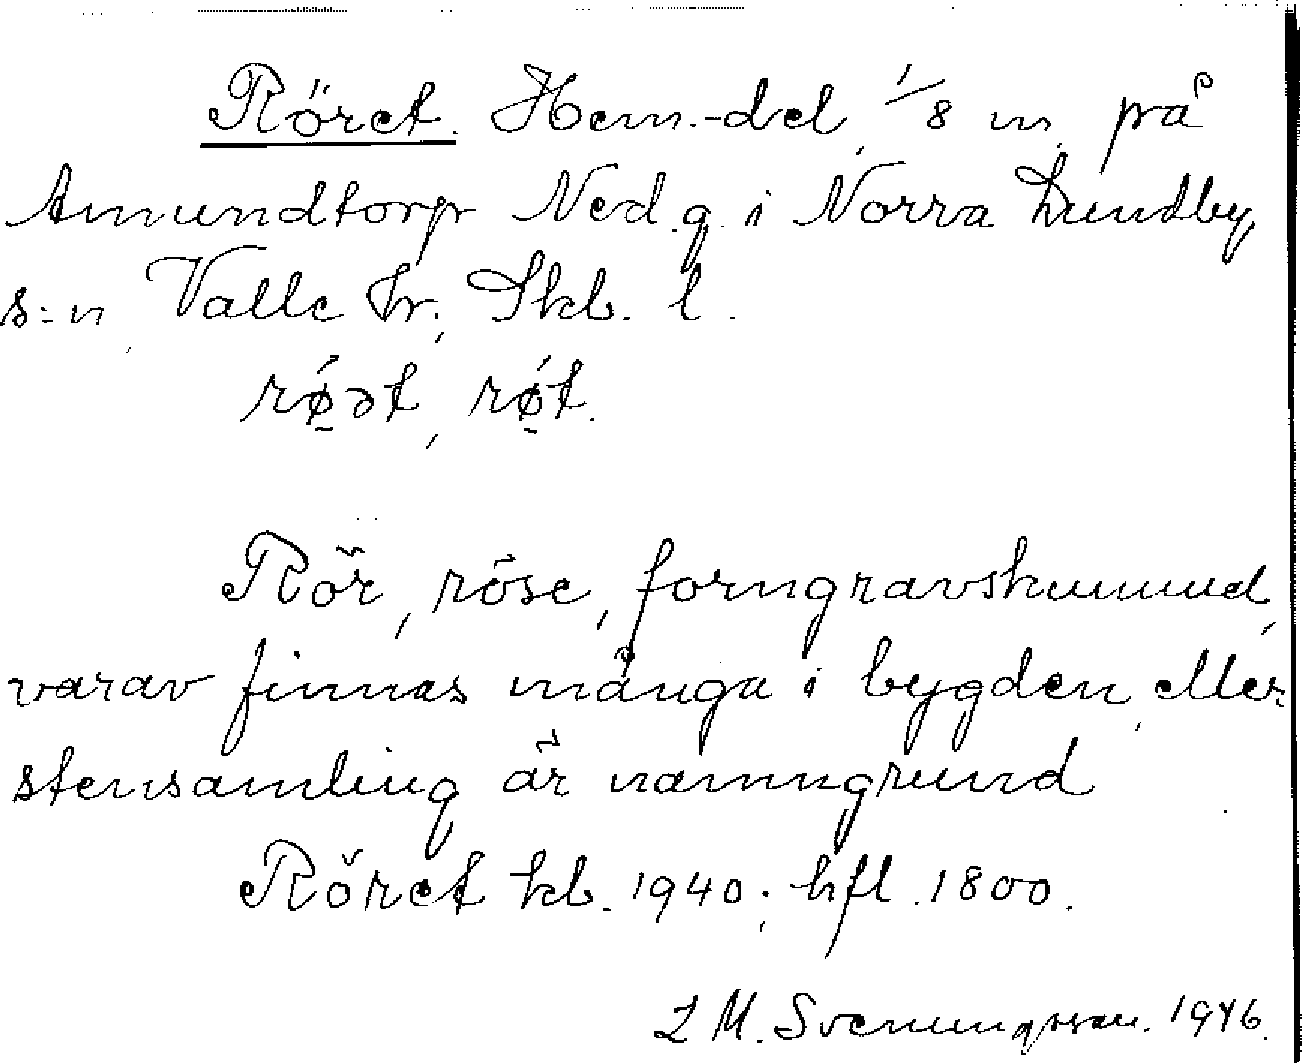 Röret. Hem.-del, 1/8 m. på
Amundtorp Ned.g. i Norra Lundby
s:n, Valle hr; Skb. l.
rǿ̱ət, rǿ̱t.
Rör, röse, forngravskummel,
varav finnas många i bygden, eller
stensamling är namngrund
Röret kb. 1940; hfl. 1800.
L M. Svenungsson. 1946.